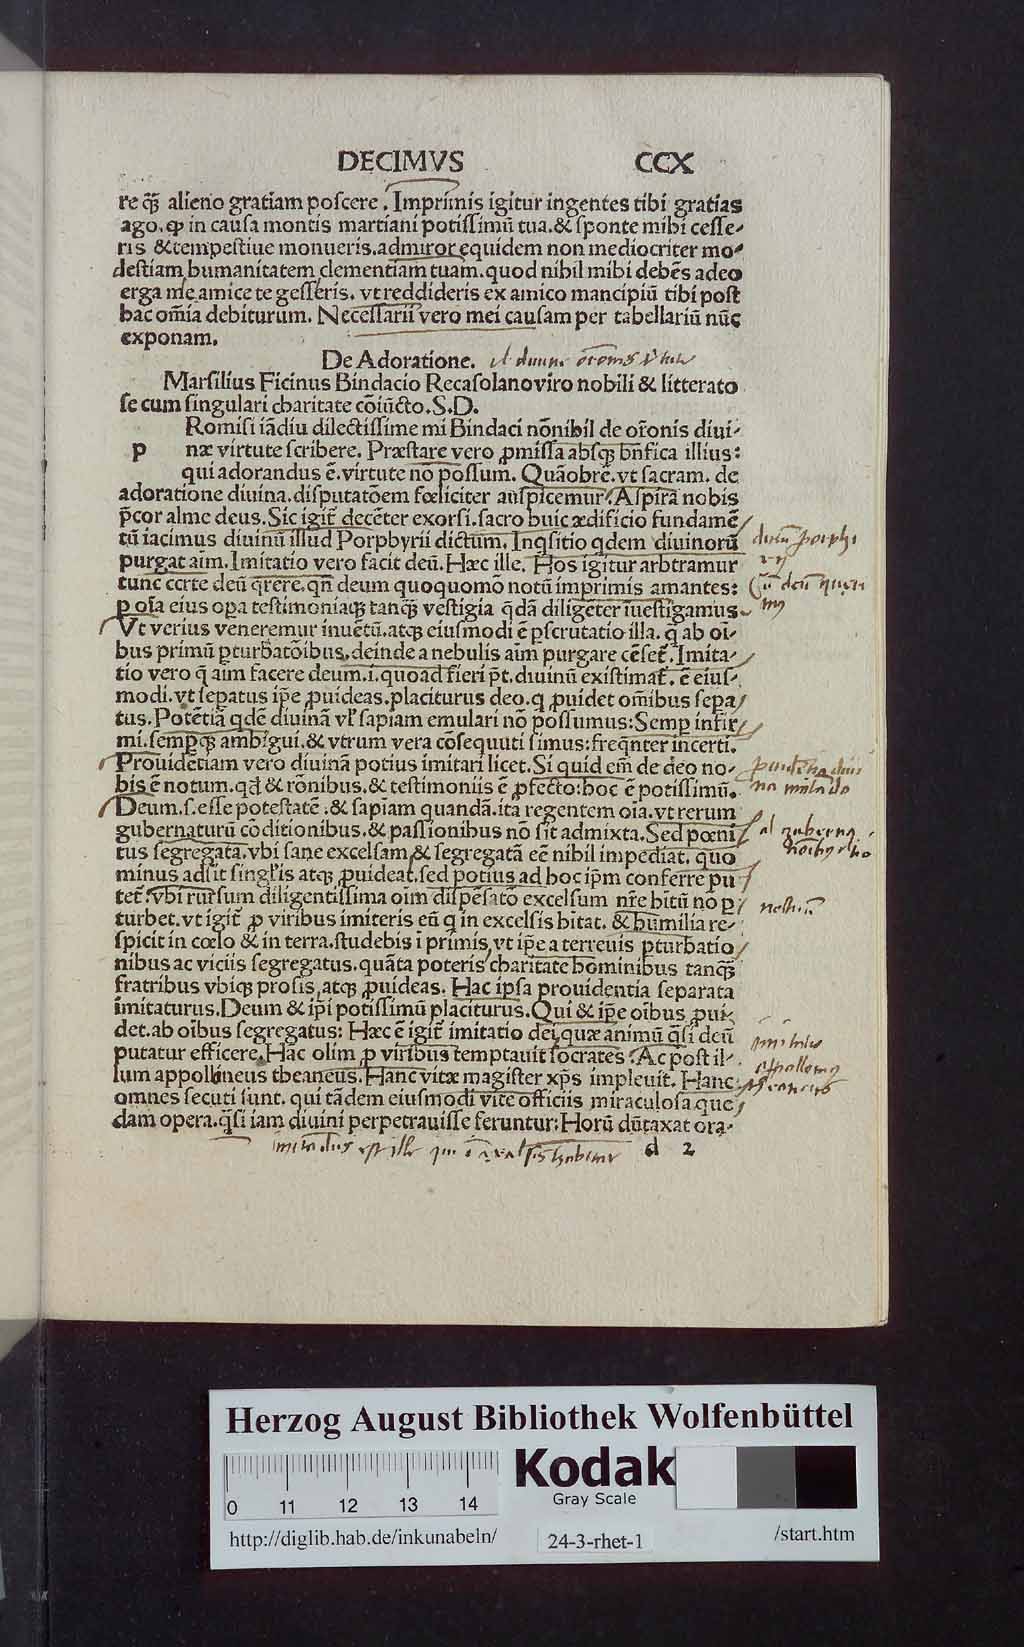 DECIMVS CCX
re q̃ꝫ alieno gratiam poscere. Imprimis igitur ingentes tibi gratias
ago. ꝙ in causa montis martiani potissimũ tua. & sponte mihi cesse-
ris & tempestiue monueris. admiror equidem non mediocriter mo-
destiam humanitatem clementiam tuam. quod nihil mihi debẽs adeo
erga me amice te gesseris. vt reddideris ex amico mancipiũ tibi post
hac om̃ia debiturum. Necessarii vero mei causam per tabellariũ nũc
exponam.
De Adoratione.
Marsilius Ficinus Bindacio Recasolano viro nobili & litterato
se cum singulari charitate cõiũcto. S. D.
Romisi iãdiu dilectissime mi Bindaci nõnihil de or̃onis diui-
p næ virtute scribere. Præstare vero ꝓmissa absqꝫ bñfica illius:
qui adorandus ẽ. virtute no possum. Quãobrẽ. vt sacram. de
adoratione diuina. disputatõem fœliciter auspicemur. Aspira nobis
p̃cor alme deus. Sic igit̃ decẽter exorsi. sacro huic ædificio fundamẽ
tũ iacimus diuinũ illud Porphyrii dictum. Inq̃sitio qdem diuinorũ
purgat aĩm. Imitatio vero facit deũ. Hæc ille. Hos igitur arbtramur
tunc certe deũ q̃rere. qñ deum quoquomõ notũ imprimis amantes:
ꝑ oĩa eius oꝑa testimoniaqꝫ tanq̃ꝫ vestigia q̃dã diligẽter iuestigamus
Vt verius veneremur inuẽtũ. atqꝫ eiusmodi ẽ ꝑscrutatio illa. q̃ ab oĩ-
bus primũ ꝑturbatõibus. deinde a nebulis aĩm purgare cẽset̃. Imita-
tio vero q̃ aĩm facere deum. i. quoad fieri p̃t. diuinũ existimat̃. ẽ eius-
modi. vt seꝑatus ip̃e ꝓuideas. placiturus deo. q ꝓuidet om̃ibus seꝑa
tus. Potẽtiã qdẽ diuinã vl̃ sapiam emulari nõ possumus: Semꝑ infir
mi. semꝑqꝫ ambigui. & vtrum vera cõsequuti simus: freq̃nter incerti.
Prouidẽtiam vero diuinã potius imitari licet. Si quid em̃ de deo no-
bis ẽ notum. qd̃ & rõnibus. & testimoniis ẽ ꝑfecto: hoc ẽ potissimũ.
Deum. s. esse potestatẽ: & sapĩam quandã. ita regentem oĩa. vt rerum
gubernaturũ cõditionibus. & passionibus nõ sit admixta. Sed pœni
tus segregata. vbi sane excelsam & segregatã eẽ nihil impediat. quo
minus adsit singl̃is atqꝫ ꝓuideat. sed potius ad hoc ip̃m conferre pu
tet̃. vbi rursum diligentissima oĩm dispẽsatõ excelsum nr̃e hĩtũ nõ ꝑ
turbet. vt igit̃ ꝓ viribus imiteris eũ q in excelsis hĩtat. & humilia re-
spicit in cœlo & in terra. studebis ĩ primis vt ip̃e a terrenis ꝑturbatio
nibus ac viciis segregatus. quãta poteris charitate hominibus tanq̃ꝫ
fratribus vbiqꝫ prosis atqꝫ ꝓuideas. Hac ipsa prouidentia separata
imitaturus. Deum & ip̃i potissimũ placiturus. Qui & ip̃e oĩbus ꝓui-
det. ab oĩbus segregatus: Hæc ẽ igit̃ imitatio dei quæ animũ q̃si deũ
putatur efficere. Hac olim ꝓ viribus temptauit socrates. Ac post il-
lum appollineus theaneus. Hanc vitæ magister xp̃s impleuit. Hanc
omnes secuti sunt. qui tãdem eiusmodi vite officiis miraculosa que
dam opera. q̃si iam diuini perpetrauisse feruntur: Horũ dũtaxat ora-
d 2
Herzog August Bibliothek Wolfenbüttel
Kodak
Gray Scale
0 11 12 13 14
http://diglib.hab.de/inkunabeln/ 24-3-rhet-1 /start.htm